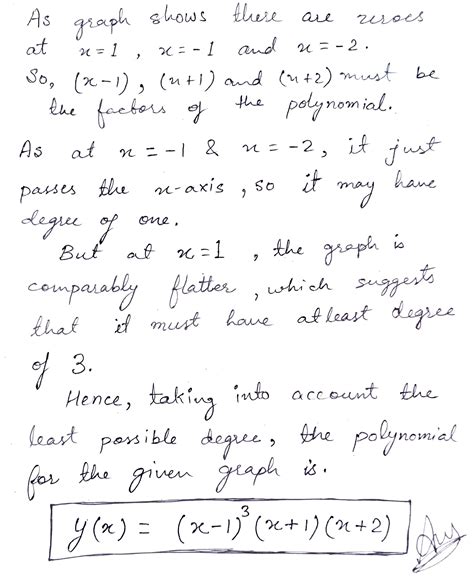 As graph shows there are zeroes
at x=1 , x=-1 and x=-2.
So, (x-1), (x+1) and (x+2) must be
the factors of the polynomial.
As at x=-1 & x=-2, it just
passes the x-axis, so it may have
degree of one.
But at x=1 , the graph is
comparably flatter, which suggests
that it must have atleast degree
of 3.
Hence, taking into account the
least possible degree, the polynomial
for the given graph is.
y(x) = (x-1)³(x+1)(x+2)